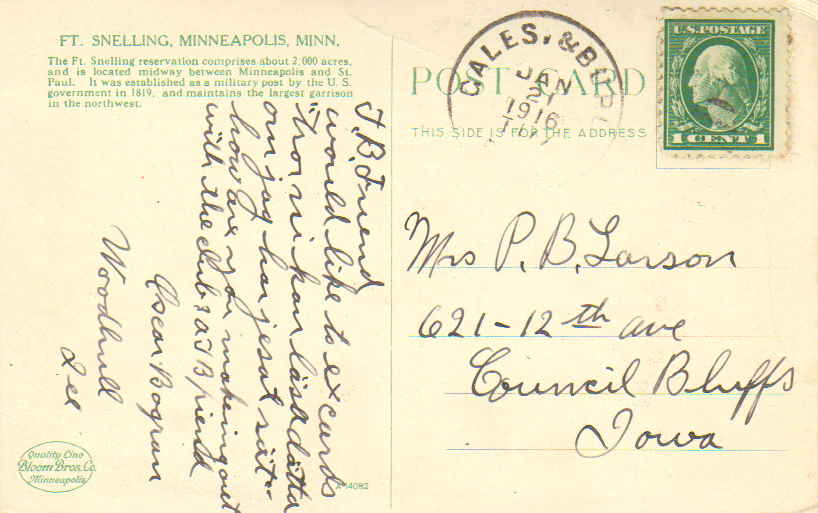 FT. SNELLING, MINNEAPOLIS, MINN,
The Ft. Snelling reservation comprises about 2,000 acres,
and is located midway between Minneapolis and St.
Paul. It was established as a military post by the U. S.
government in 1819, and maintains the largest garrison
in the northwest.
J. B. Friend
would like to ex cards
"tror ni kan läsa detta
om jag har rätt
how are you makeing out
with the club? a J B
Oscar
Woodhull
Ill
Quality Line
Bloom Bros. Co.
Minneapolis
A-14082
POST CARD
THIS SIDE IS FOR THE ADDRESS
GALES. &
JAN
21
1916
U.S. POSTAGE
1 CENT 1
Mrs P. B. Larson
621-12th ave
Council Bluffs
Iowa